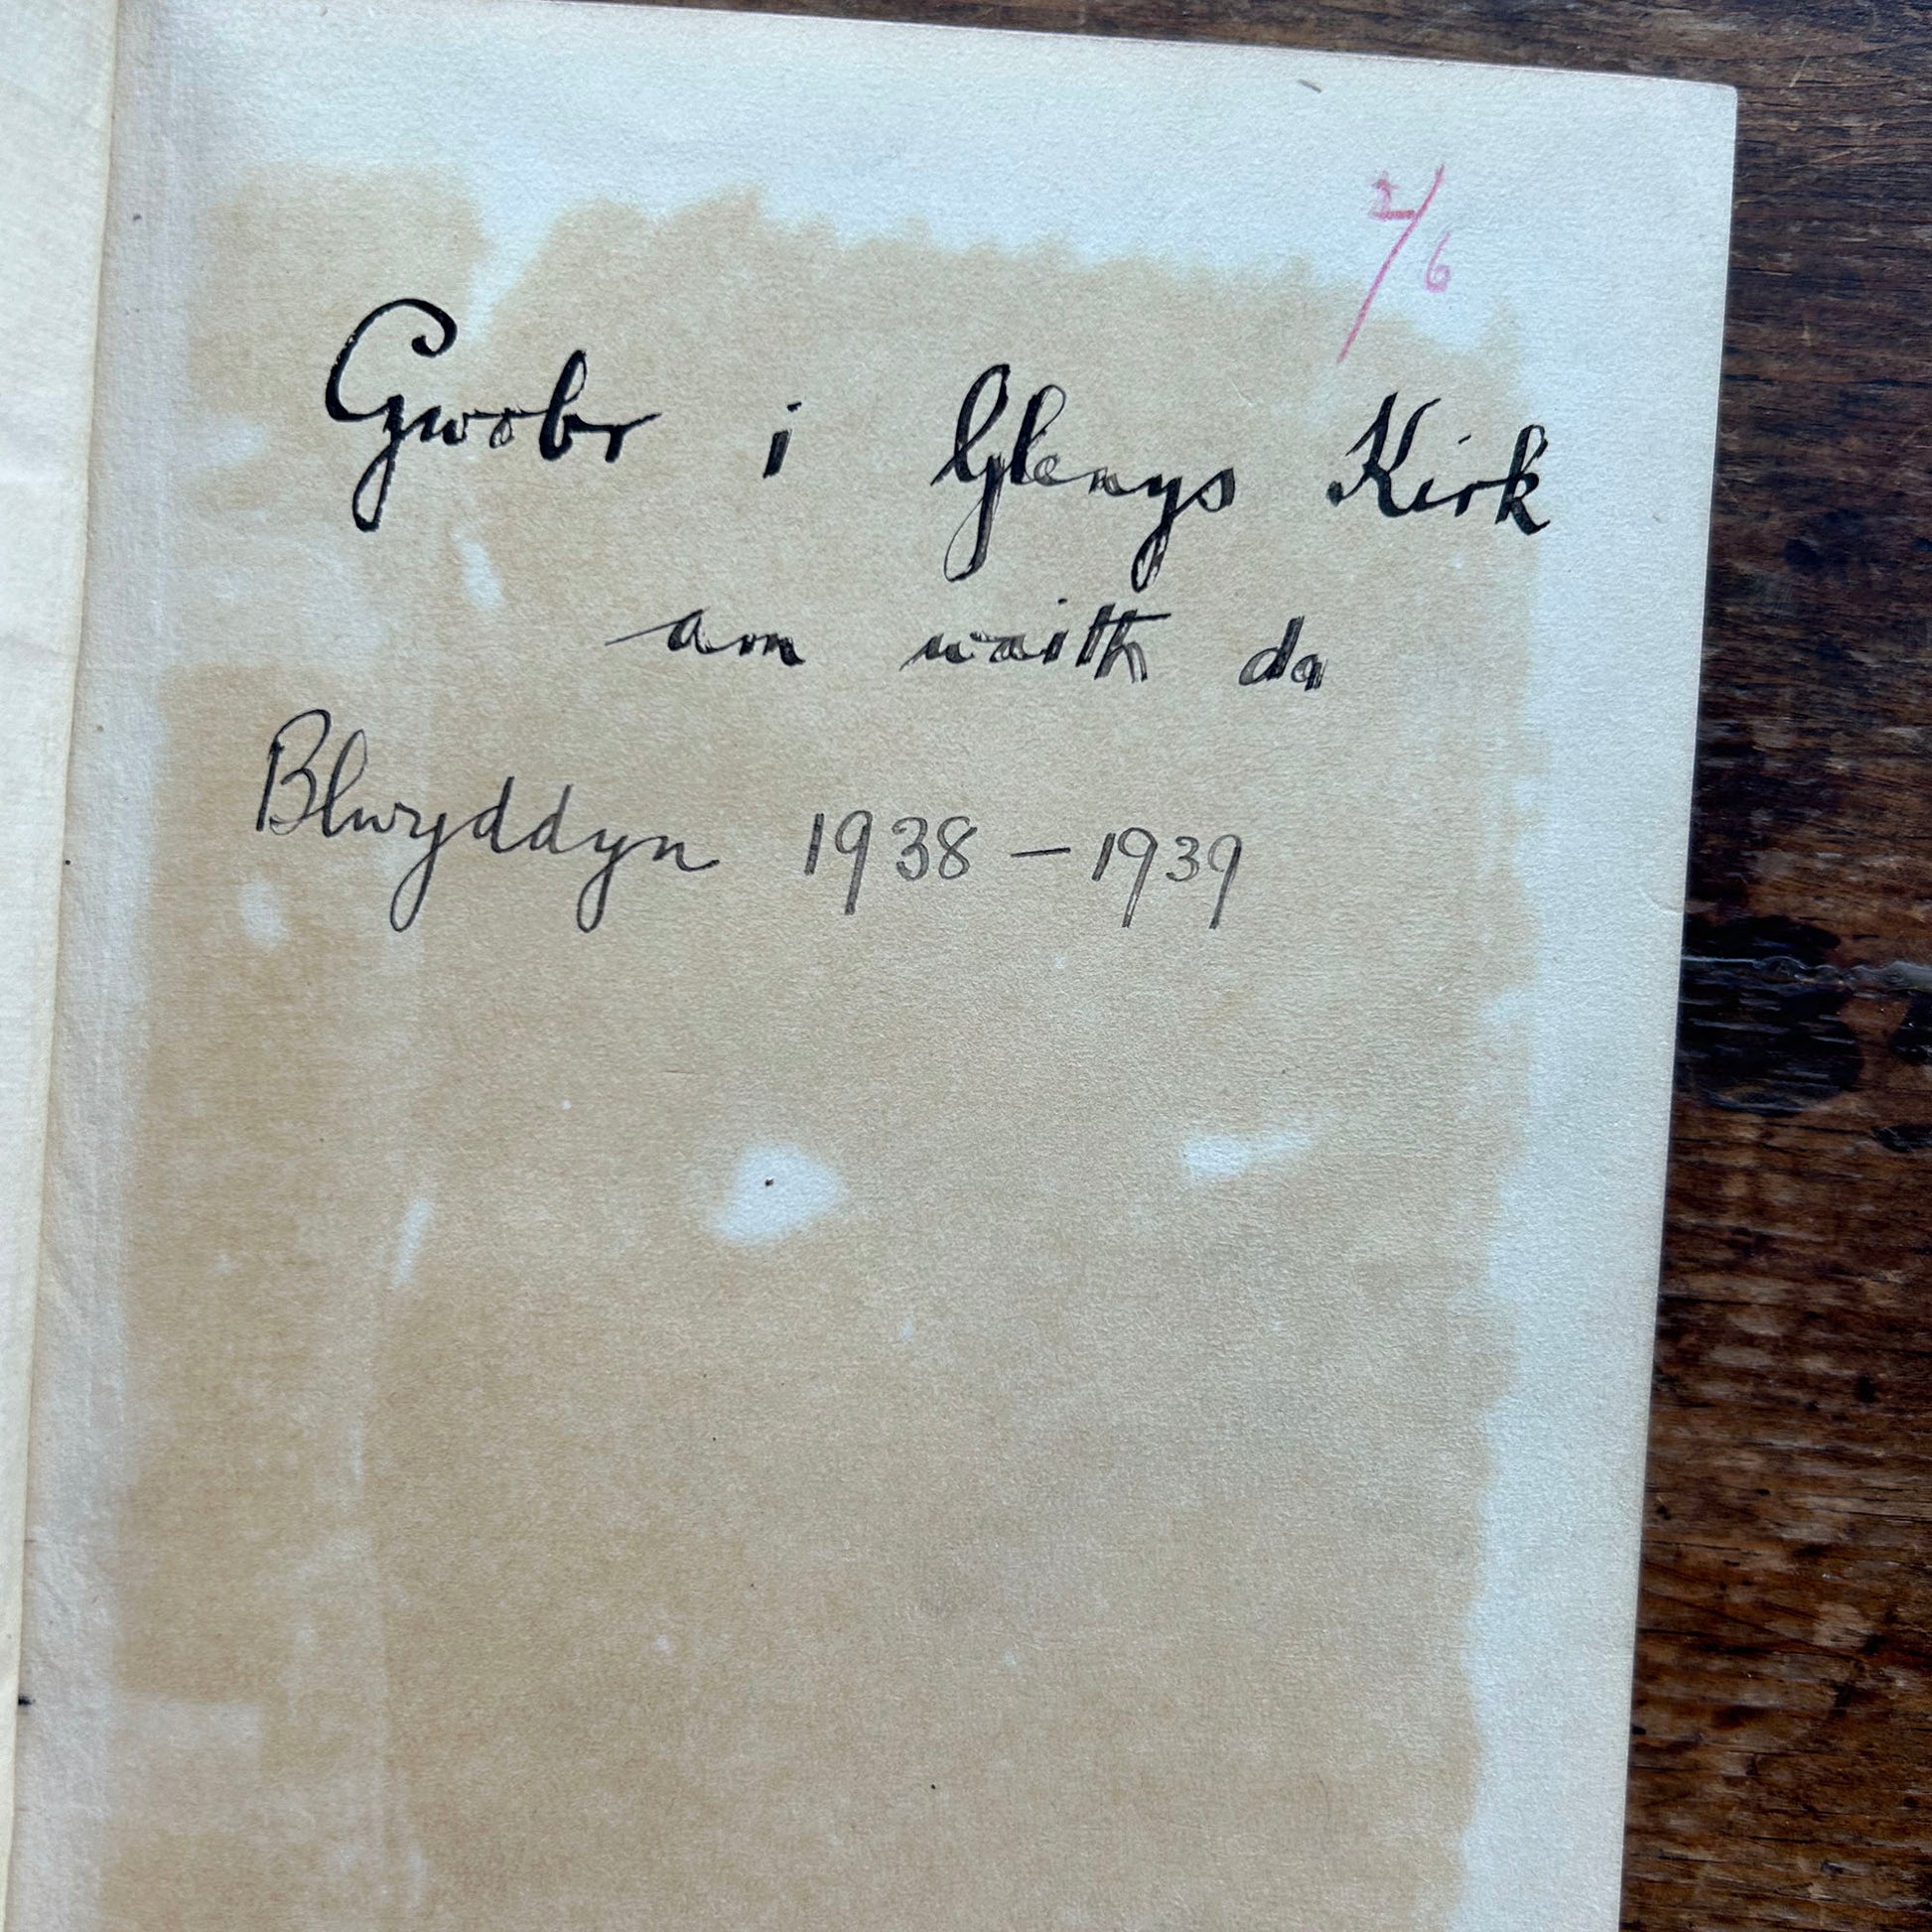 2/6
Gwobr i Glenys Kirk
am waith da
Blwyddyn 1938 – 1939